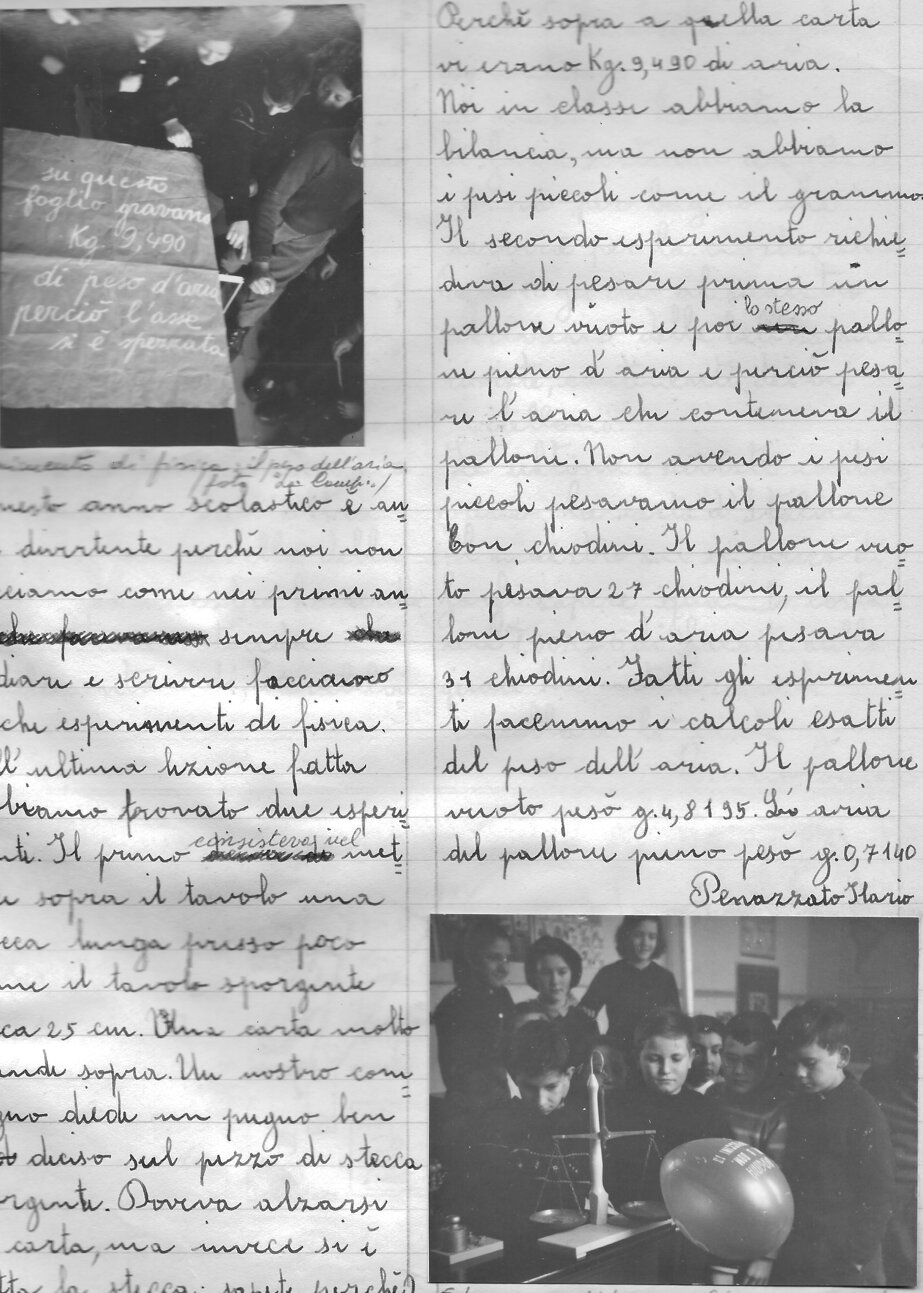 su questo
foglio gravano
Kg. 9,490
di peso d'aria
perciò l'asse
si è spezzata
di fisica: il peso dell'aria
anno scolastico è an=
divertente perchè noi non
come nei primi an=
sempre
e scrivere facciamo
che esperimenti di fisica.
ultima lezione fatta
trovato due esperi=
Il primo consisteva nel met=
sopra il tavolo una
lunga presso poco
il tavolo sporgente
25 cm. Una carta molto
sopra. Un nostro com=
diede un pugno ben
deciso sul pezzo di stecca
Doveva alzarsi
carta, ma invece si è
la stecca: sapete perchè?
Perchè sopra a quella carta
vi erano Kg. 9,490 di aria.
Noi in classe abbiamo la
bilancia, ma non abbiamo
i pesi piccoli come il grammo.
Il secondo esperimento richie=
deva di pesare prima un
pallone vuoto e poi lo stesso pallo=
ne pieno d'aria e perciò pesa=
re l'aria che conteneva il
pallone. Non avendo i pesi
piccoli pesavamo il pallone
con chiodini. Il pallone vuo=
to pesava 27 chiodini, il pal=
lone pieno d'aria pesava
31 chiodini. Fatti gli esperimen=
ti facemmo i calcoli esatti
del peso dell'aria. Il pallone
vuoto pesò g. 4,8195. L'aria
del pallone pieno pesò g. 0,7140
Penazzato Ilario